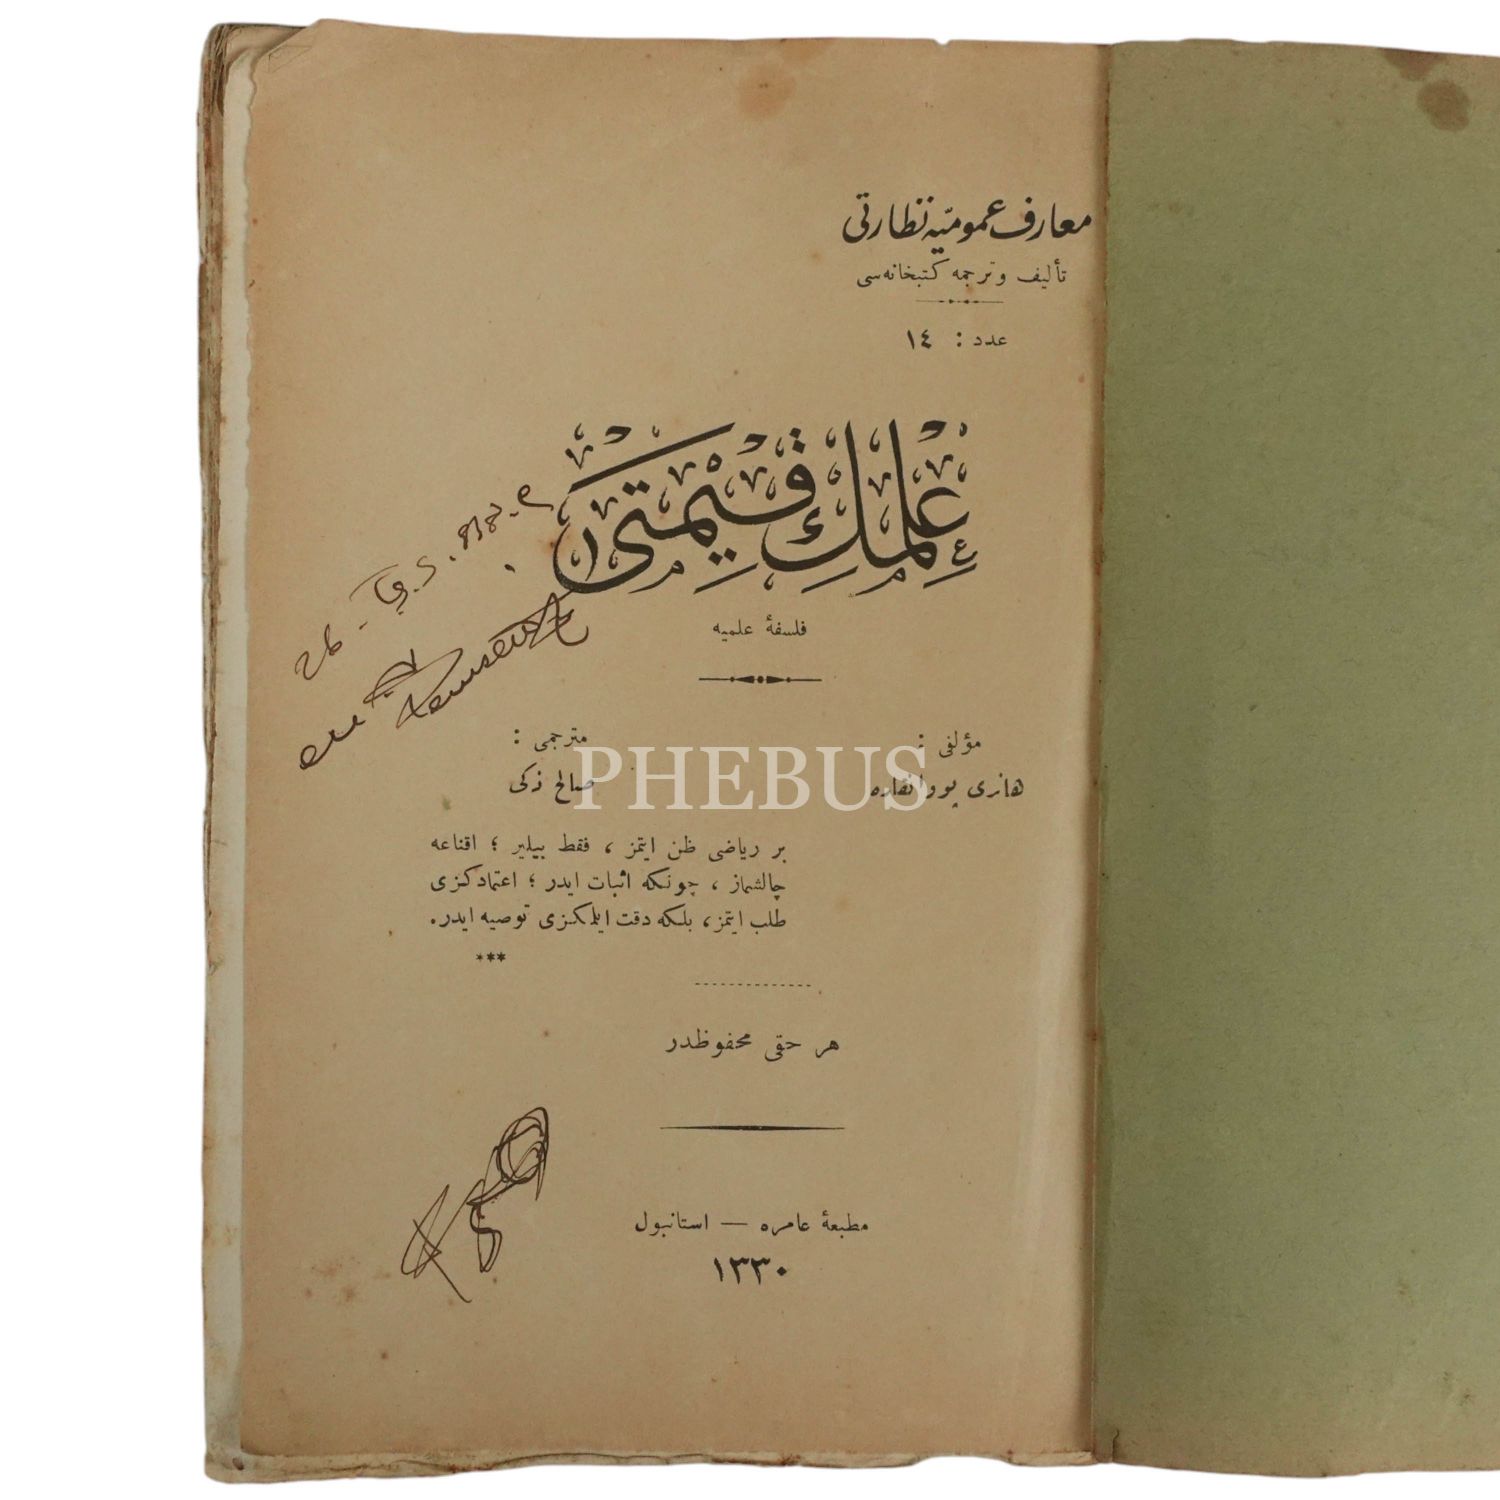 معارف عمومیّه نظارتی
تألیف و ترجمه کتبخانه‌سی
عدد : ١٤
علمك قیمتی
فلسفهٔ علمیه
مؤلفی :
هانری پووانقاره
مترجمی :
صالح ذکی
PHEBUS
بر ریاضی ظن ایتمز ، فقط بیلیر ؛ اقناعه
چالشماز ، چونکه اثبات ایدر ؛ اعتمادکزی
طلب ایتمز ، بلکه دقت ایلمکزی توصیه ایدر .
***
هر حقی محفوظدر
مطبعهٔ عامره — استانبول
١٣٣٠